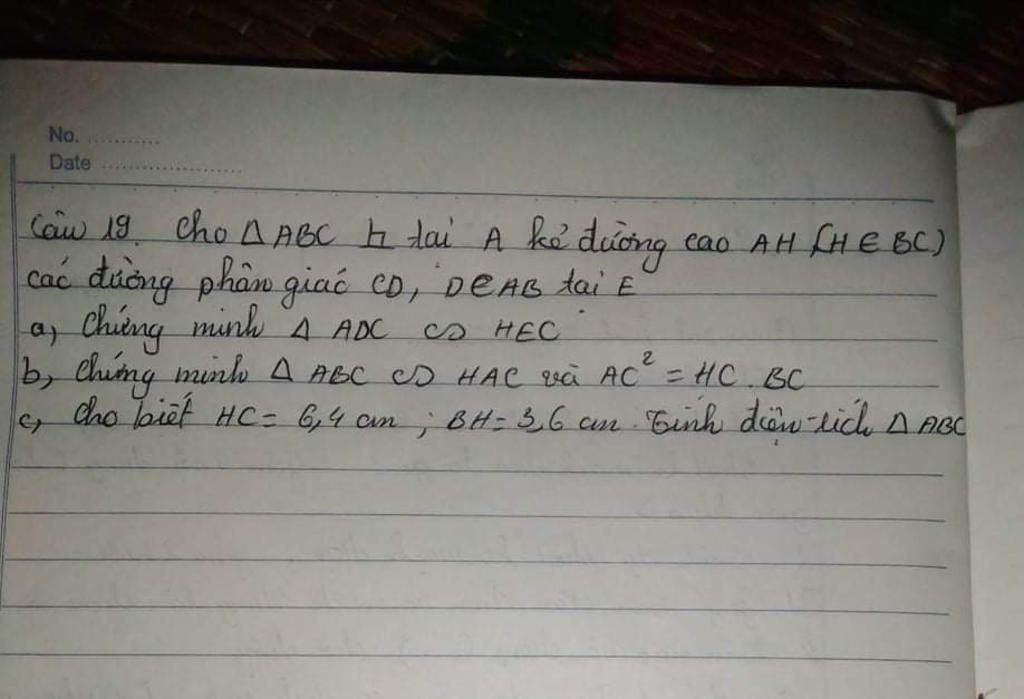 No. ...........
Date .....................
Câu 19. Cho Δ ABC ⊾ tại A kẻ đường cao AH (H ∈ BC)
các đường phân giác CD, D∈AB tại E
a, Chứng minh Δ ADC ∽ HEC
b, Chứng minh Δ ABC ∽ HAC và AC² = HC. BC
c, Cho biết HC = 6,4 cm ; BH = 3,6 cm. Tính diện tích Δ ABC